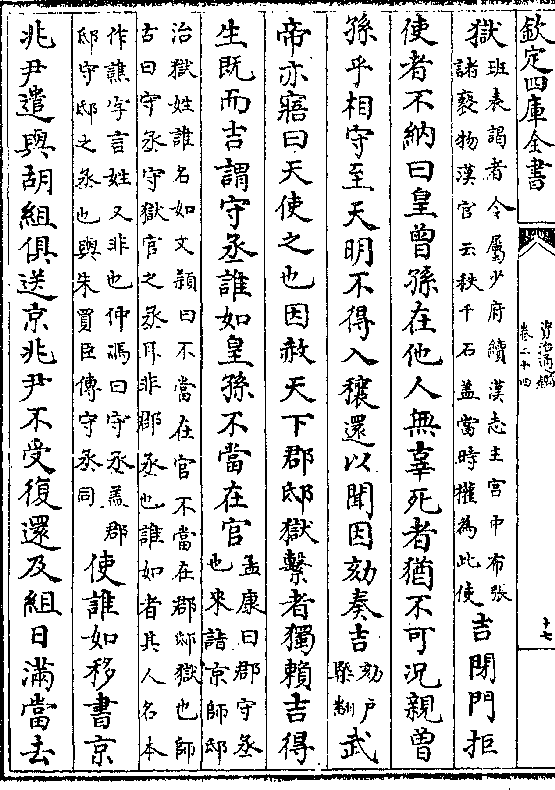 欽定四庫全書
資治通鑑
卷二十四
十七
獄班表謁者令屬少府續漢志主宮中布張
諸褻物漢官云秩千石蓋當時權為此使吉閉門拒
使者不納曰皇曾孫在他人無辜死者猶不可況親曾
孫乎相守至天明不得入穰還以聞因劾奏吉劾戶
槩翻武
帝亦寤曰天使之也因赦天下郡邸獄繫者獨賴吉得
生既而吉謂守丞誰如皇孫不當在官孟康曰郡守丞
也來詣京師邸
治獄姓誰名如文穎曰不當在官不當在郡邸獄也師
古曰守丞守獄官之丞耳非郡丞也誰如者其人名本
作譙字言姓又非也仲馮曰守丞蓋郡
邸守邸之丞也與朱買臣傳守丞同使誰如移書京
兆尹遣與胡組俱送京兆尹不受復還及組日滿當去